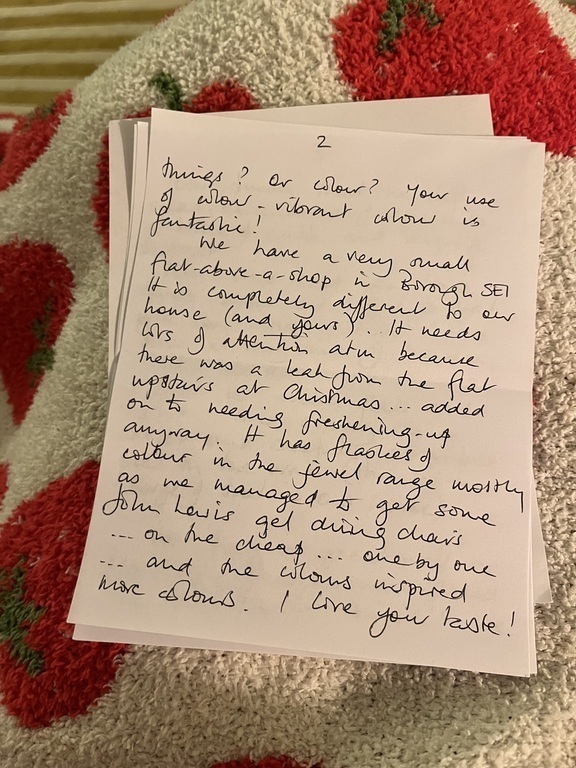 2
things? Or colour? Your use
of colour - vibrant colour is
fantastic!
We have a very small
flat-above-a-shop in Borough SE1
It is completely different to our
house (and yours). It needs
lots of attention atm because
there was a leak from the flat
upstairs at Christmas... added
on to needing freshening-up
anyway. It has flashes of
colour in the jewel range mostly
as we managed to get some
John Lewis gel dining chairs
... on the cheap ... one by one
... and the colours inspired
more colours. I love your taste!